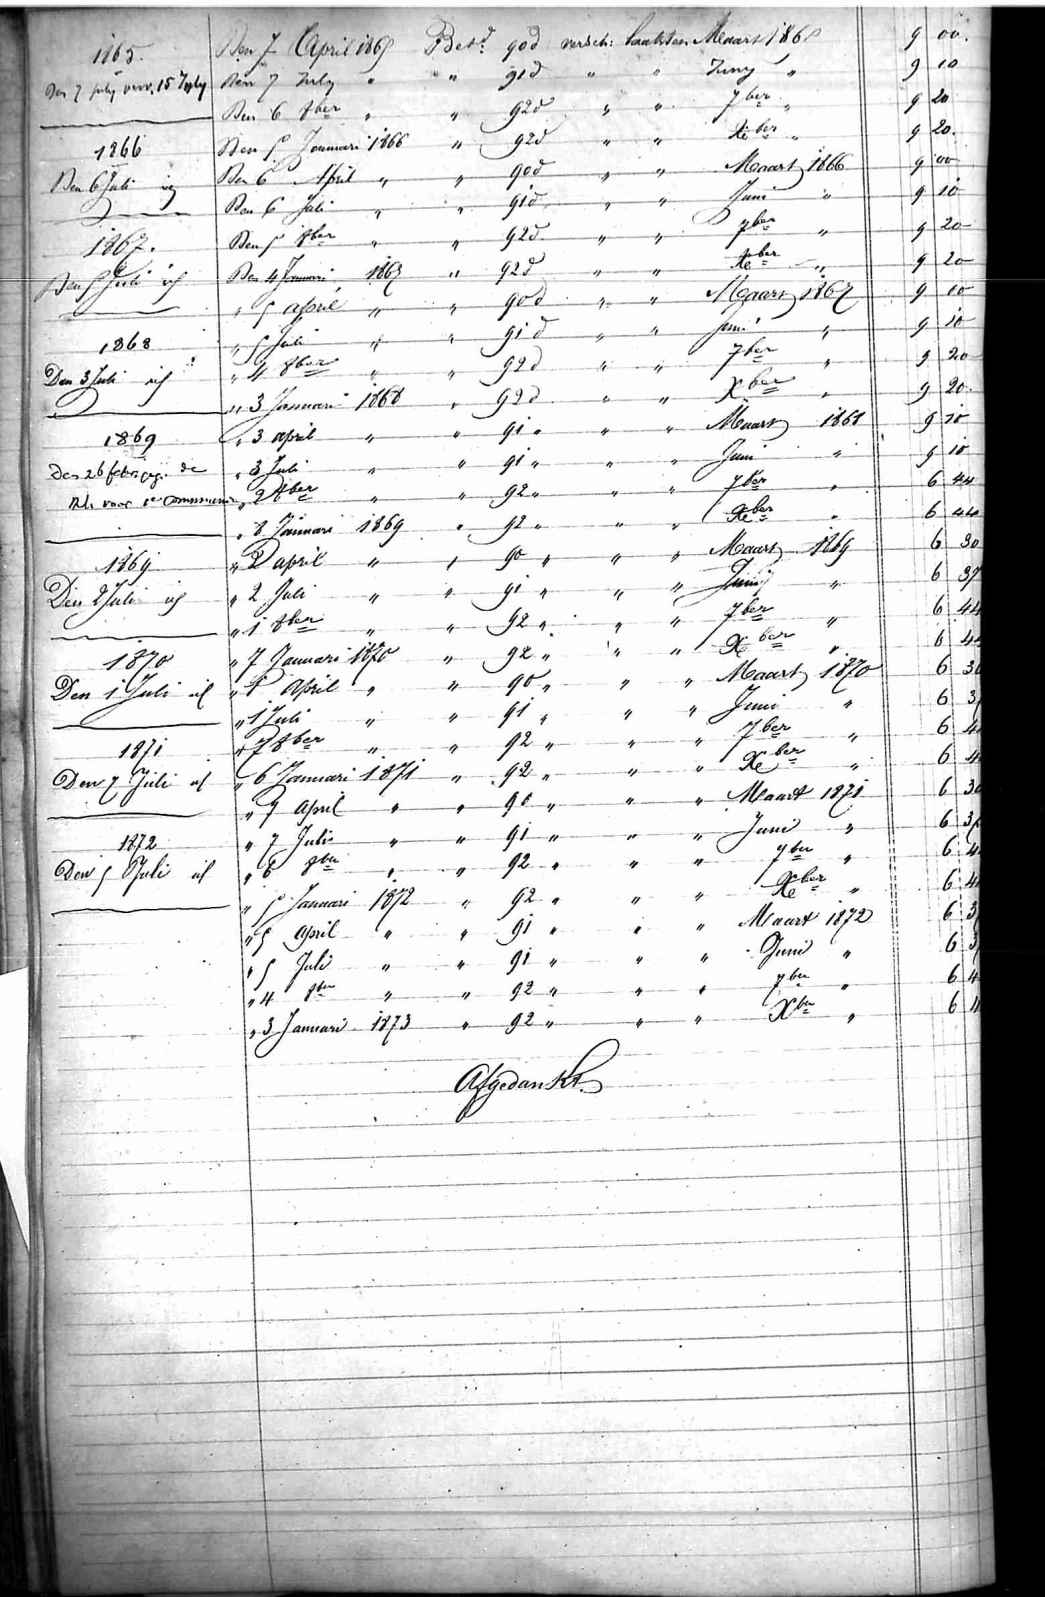 1865.
Den 7 April 1865 Betd. 90d versch: laatsten Maart 1865 9 00.
Den 7 July 15 July
Den 7 July " " " 91d " " Juny " 9 10
Den 6 8ber " " 92d " " 7ber " 9 20
1866
Den 5 Januari 1866 " 92d " " Xber " 9 20.
Den 6 Juli
Den 6 April " " 90d " " Maart 1866 9 00
Den 6 Juli " " 91d " " Juni " 9 10
1867.
Den 5 8ber " " 92d " " 7ber " 9 20
Den 5 Juli
Den 4 Januari 1867 " 92d " " Xber " 9 20
" 5 april " " 90d " " Maart 1867 9 10
1868
" 5 Juli " " 91d " " Juni " 9 10
Den 3 Juli
" 4 8ber " " 92d " " 7ber " 9 20
" 3 Januari 1868 " 92d " " Xber " 9 20.
1869
" 3 april " " 91 " " " Maart 1868 9 10
Den 26 feb. de
" 3 Juli " " 91 " " " Juni " 9 10
voor 1e Communie
" 2 8ber " " 92 " " " 7ber " 6 44
" 8 Januari 1869 " 92 " " " Xber " 6 44
1869
" 2 april " " 90 " " " Maart 1869 6 30
Den 2 Juli
" 2 Juli " " 91 " " " Junij " 6 37
" 1 8ber " " 92 " " " 7ber " 6 44
1870
" 7 Januari 1870 " 92 " " " Xber " 6 44
Den 1 Juli
" 1 April " " 90 " " " Maart 1870 6 30
" 1 Juli " " 91 " " " Juni " 6 3
1871
" 7 8ber " " 92 " " " 7ber " 6 4
Den 7 Juli
" 6 Januari 1871 " 92 " " " Xber " 6 4
" 7 April " " 90 " " " Maart 1871 6 30
1872
" 7 Juli " " 91 " " " Juni " 6 3
Den 5 Juli
" 6 8ber " " 92 " " " 7ber " 6 4
" 5 Januari 1872 " 92 " " " Xber " 6 4
" 5 April " " 91 " " " Maart 1872 6 3
" 5 Juli " " 91 " " " Juni " 6 3
" 4 8ber " " 92 " " " 7ber " 6 4
" 3 Januari 1873 " 92 " " " Xber " 6 4
Afgedankt.